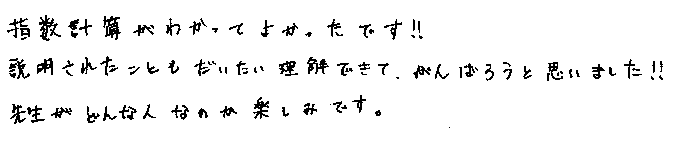 指数計算がわかってよかったです!!
説明されたこともだいたい理解できて、がんばろうと思いました!!
先生がどんな人なのか楽しみです。